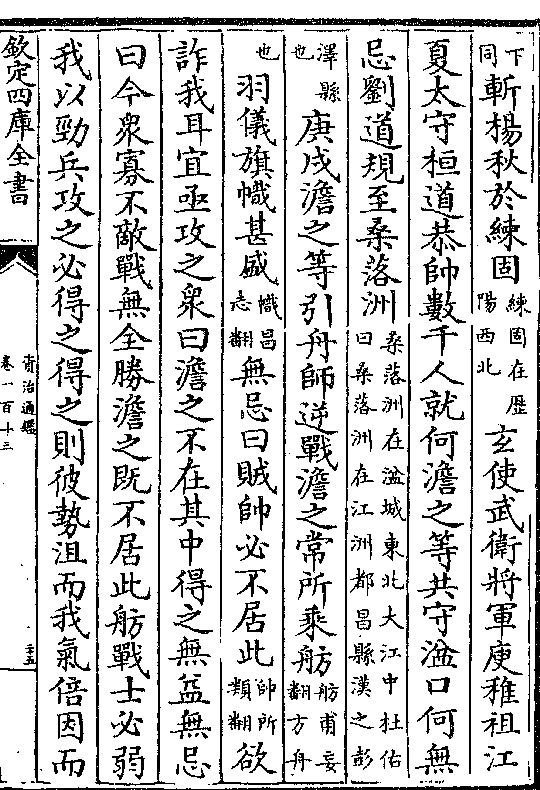 下同斬楊秋於練固練固在歷陽西北玄使武衛將軍庾稚祖江
夏太守桓道恭帥數千人就何澹之等共守湓口何無
忌劉道規至桑落洲桑落洲在湓城東北大江中杜佑曰桑落洲在江洲都昌縣漢之彭
澤縣也庚戌澹之等引舟師逆戰澹之常所乘舫舫甫妄翻方舟
也羽儀旗幟甚盛幟昌志翻無忌曰賊帥必不居此帥所類翻欲
詐我耳宜亟攻之衆曰澹之不在其中得之無益無忌
曰今衆寡不敵戰無全勝澹之既不居此舫戰士必弱
我以勁兵攻之必得之得之則彼勢沮而我氣倍因而
欽定四庫全書
資治通鑑
卷一百十三